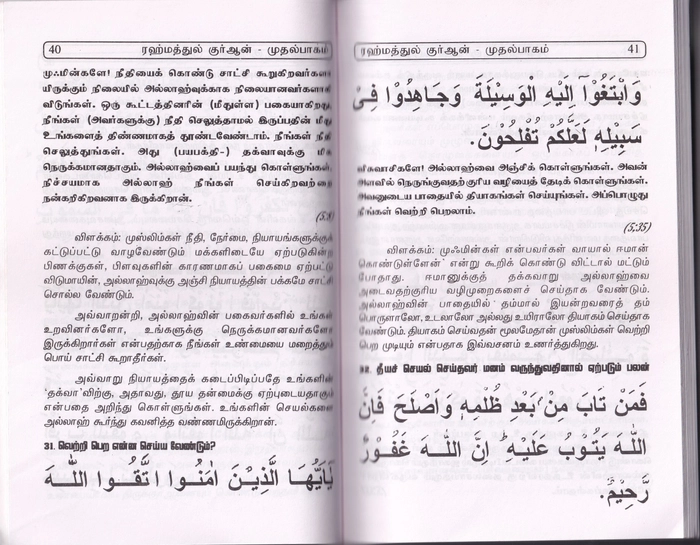 40 ரஹ்மத்துல் குர்ஆன் - முதல்பாகம்
முஃமின்களே! நீதியைக் கொண்டு சாட்சி கூறுகிறவர்களா
யிருக்கும் நிலையில் அல்லாஹ்வுக்காக நிலையானவர்களாகி
விடுங்கள். ஒரு கூட்டத்தினரின் (மீதுள்ள) பகையாகிறது
நீங்கள் (அவர்களுக்கு) நீதி செலுத்தாமல் இருப்பதின் மீது
உங்களைத் திண்ணமாகத் தூண்டவேண்டாம். நீங்கள் நீதி
செலுத்துங்கள். அது (பயபக்தி-) தக்வாவுக்கு மிக
நெருக்கமானதாகும். அல்லாஹ்வைப் பயந்து கொள்ளுங்கள்
நிச்சயமாக அல்லாஹ் நீங்கள் செய்கிறவற்றை
நன்கறிகிறவனாக இருக்கிறான்.
(5:8)
விளக்கம்: முஸ்லிம்கள் நீதி, நேர்மை, நியாயங்களுக்குக்
கட்டுப்பட்டு வாழவேண்டும் மக்களிடையே ஏற்படுகின்ற
பிணக்குகள், பிளவுகளின் காரணமாகப் பகைமை ஏற்பட்டு
விடுமாயின், அல்லாஹ்வுக்கு அஞ்சி நியாயத்தின் பக்கமே சாட்சி
சொல்ல வேண்டும்.
அவ்வாறன்றி, அல்லாஹ்வின் பகைவர்களில் உங்கள்
உறவினர்களோ, உங்களுக்கு நெருக்கமானவர்களோ
இருக்கிறார்கள் என்பதற்காக நீங்கள் உண்மையை மறைத்துப்
பொய் சாட்சி கூறாதீர்கள்.
அவ்வாறு நியாயத்தைக் கடைப்பிடிப்பதே உங்களின்
'தக்வா'விற்கு, அதாவது, தூய தன்மைக்கு ஏற்புடையதாகும்
என்பதை அறிந்து கொள்ளுங்கள். உங்களின் செயல்களை
அல்லாஹ் கூர்ந்து கவனித்த வண்ணமிருக்கிறான்.
31. வெற்றி பெற என்ன செய்ய வேண்டும்?
يٰۤاَيُّهَا الَّذِيْنَ اٰمَنُوا اتَّقُوا اللّٰهَ
ரஹ்மத்துல் குர்ஆன் - முதல்பாகம் 41
وَابْتَغُوْۤا اِلَيْهِ الْوَسِيْلَةَ وَجَاهِدُوْا فِىْ
سَبِيْلِهٖ لَعَلَّكُمْ تُفْلِحُوْنَ.
விசுவாசிகளே! அல்லாஹ்வை அஞ்சிக் கொள்ளுங்கள். அவன்
அளவில் நெருங்குவதற்குரிய வழியைத் தேடிக் கொள்ளுங்கள்.
அவனுடைய பாதையில் தியாகங்கள் செய்யுங்கள். அப்பொழுது
நீங்கள் வெற்றி பெறலாம்.
(5:35)
விளக்கம்: முஃமின்கள் என்பவர்கள் வாயால் ஈமான்
கொண்டுள்ளேன்' என்று கூறிக் கொண்டு விட்டால் மட்டும்
போதாது. ஈமானுக்குத் தக்கவாறு அல்லாஹ்வை
அடைவதற்குரிய வழிமுறைகளைச் செய்தாக வேண்டும்.
அல்லாஹ்வின் பாதையில் தம்மால் இயன்றவரைத் தம்
பொருளாலோ, உடலாலோ அல்லது உயிராலோ தியாகம் செய்தாக
வேண்டும். தியாகம் செய்வதன் மூலமேதான் முஸ்லிம்கள் வெற்றி
பெற முடியும் என்பதாக இவ்வசனம் உணர்த்துகிறது.
32. தீயச் செயல் செய்தவர் மனம் வருந்துவதினால் ஏற்படும் பலன்
فَمَنْ تَابَ مِنْۢ بَعْدِ ظُلْمِهٖ وَاَصْلَحَ فَاِنَّ
اللّٰهَ يَتُوْبُ عَلَيْهِ ؕ اِنَّ اللّٰهَ غَفُوْرٌ
رَّحِيْمٌ.